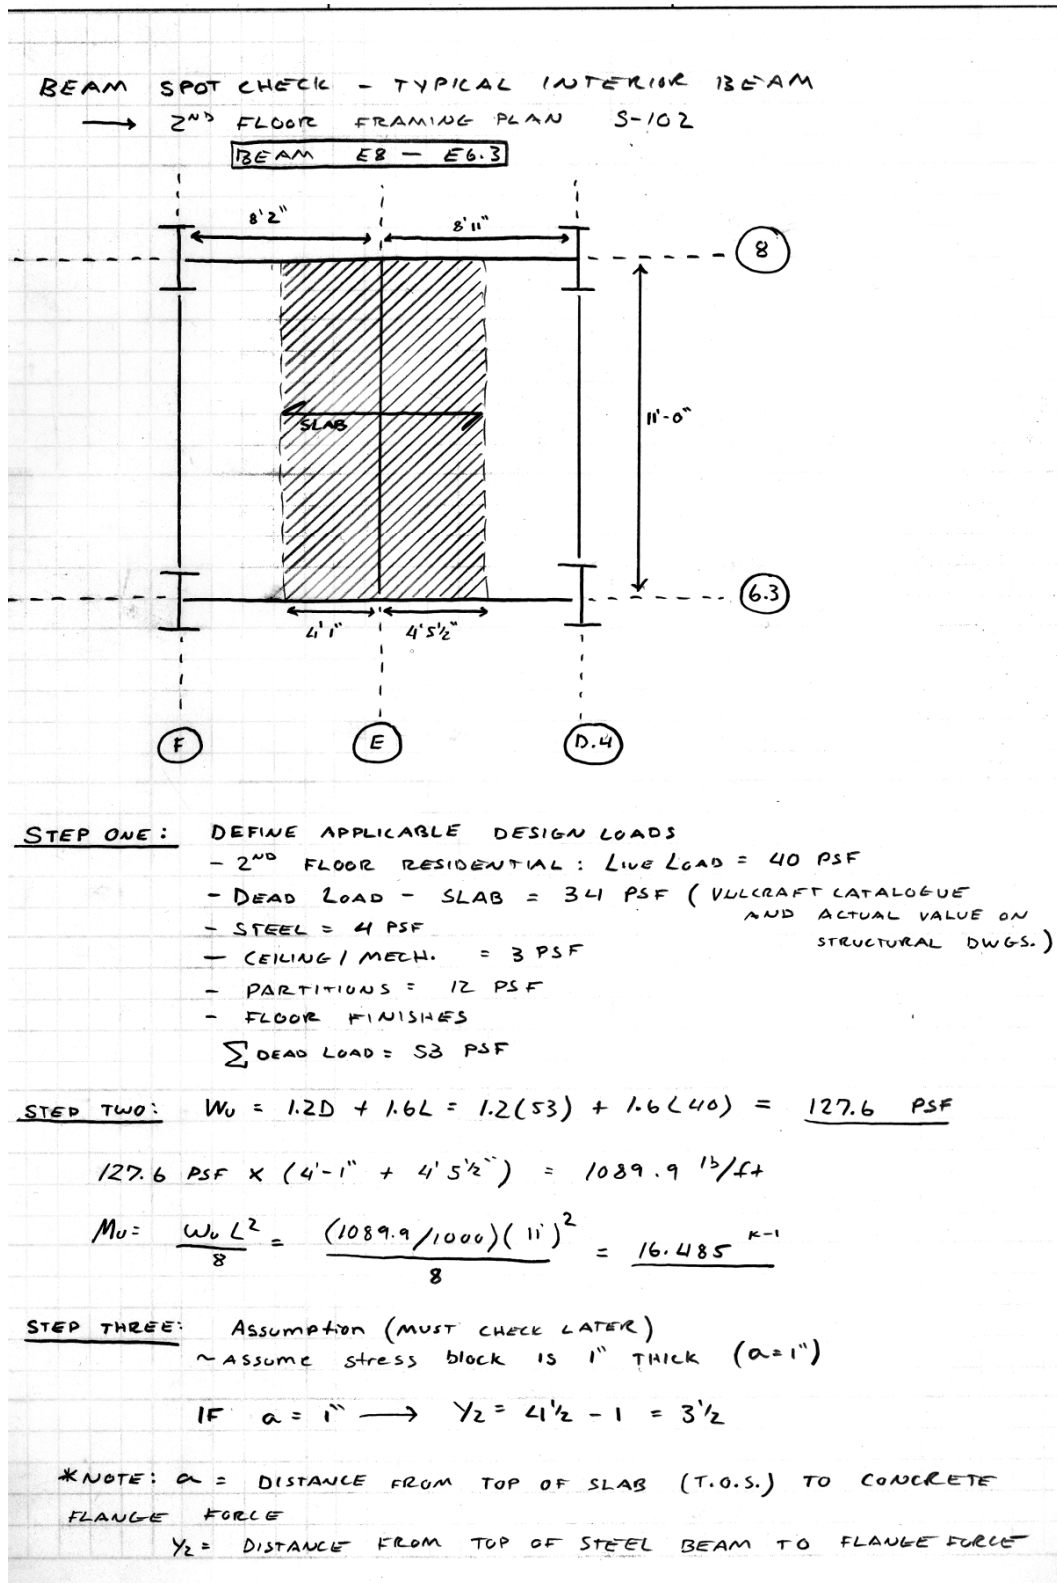 BEAM SPOT CHECK - TYPICAL INTERIOR BEAM
→ 2ND FLOOR FRAMING PLAN S-102
BEAM E8 - E6.3
8'2" 8'11"
8
SLAB
11'-0"
6.3
4'1" 4'5½"
F E D.4
STEP ONE: DEFINE APPLICABLE DESIGN LOADS
- 2ND FLOOR RESIDENTIAL: LIVE LOAD = 40 PSF
- DEAD LOAD - SLAB = 34 PSF (VULCRAFT CATALOGUE
AND ACTUAL VALUE ON
STRUCTURAL DWGS.)
- STEEL = 4 PSF
- CEILING / MECH. = 3 PSF
- PARTITIONS = 12 PSF
- FLOOR FINISHES
∑ DEAD LOAD = 53 PSF
STEP TWO: Wu = 1.2D + 1.6L = 1.2(53) + 1.6(40) = 127.6 PSF
127.6 PSF × (4'-1" + 4'5½") = 1089.9 lb/ft
Mu = WuL²/8 = (1089.9/1000)(11')²/8 = 16.485 K-1
STEP THREE: Assumption (MUST CHECK LATER)
~ Assume stress block is 1" THICK (a=1")
IF a = 1" → Y2 = 4½ - 1 = 3½
*NOTE: a = DISTANCE FROM TOP OF SLAB (T.O.S.) TO CONCRETE
FLANGE FORCE
Y2 = DISTANCE FROM TOP OF STEEL BEAM TO FLANGE FORCE